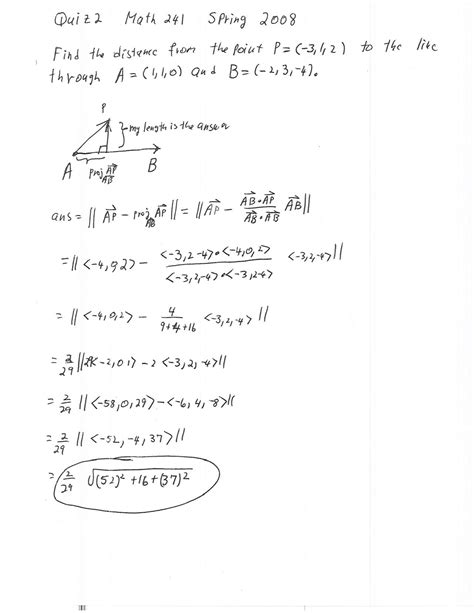 Quiz 2 Math 241 Spring 2008
Find the distance from the point P = (-3,1,2) to the line
through A = (1,1,0) and B = (-2,3,-4).
P
my length is the answer
A proj_AB AP B
ans = || AP - proj_AB AP || = || AP - (AB • AP)/(AB • AB) AB ||
= || <-4,0,2> - (<-3,2,-4> • <-4,0,2>)/(<-3,2,-4> • <-3,2,-4>) <-3,2,-4> ||
= || <-4,0,2> - 4/(9+4+16) <-3,2,-4> ||
= 2/29 || 29<-2,0,1> - 2 <-3,2,-4> ||
= 2/29 || <-58,0,29> - <-6,4,-8> ||
= 2/29 || <-52,-4,37> ||
= 2/29 √((52)² + 16 + (37)²)